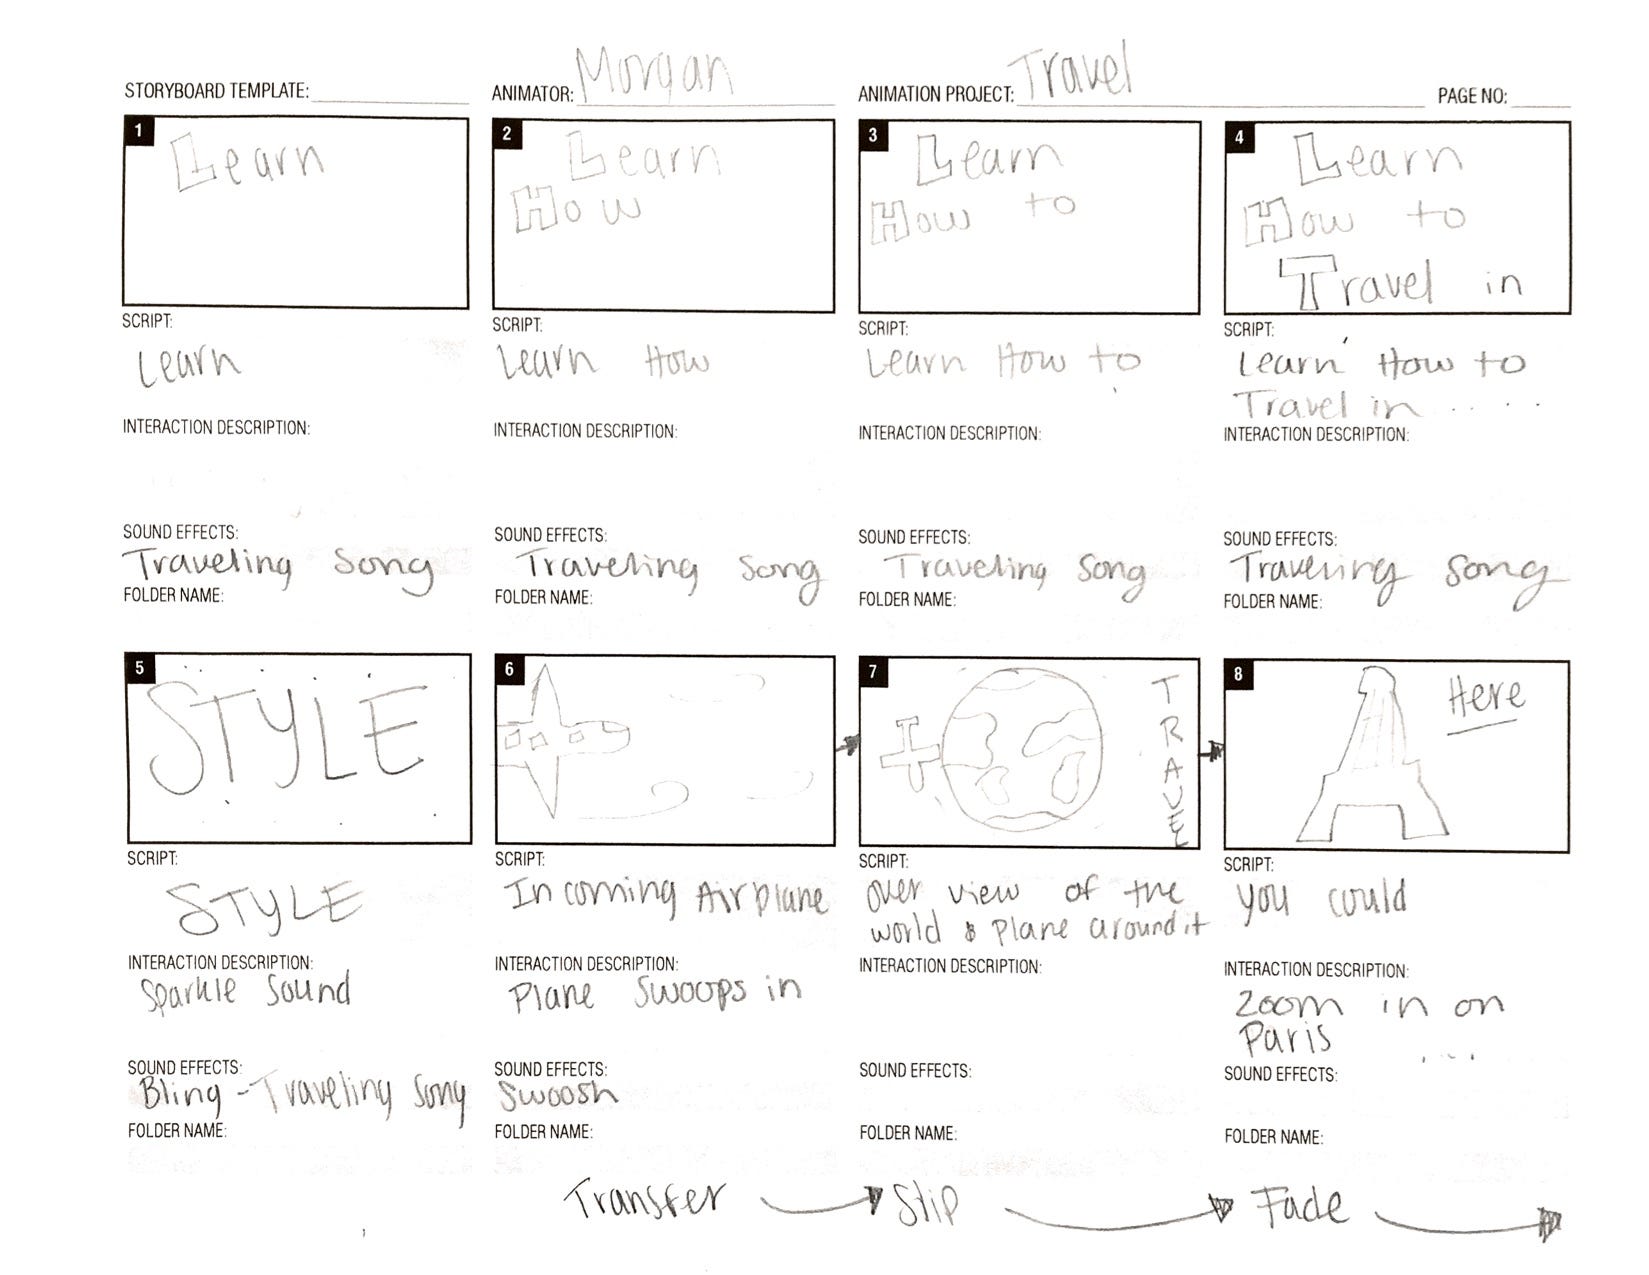 STORYBOARD TEMPLATE: ANIMATOR: Morgan ANIMATION PROJECT: Travel PAGE NO:
1
Learn
SCRIPT:
Learn
INTERACTION DESCRIPTION:
SOUND EFFECTS:
Traveling song
FOLDER NAME:
2
Learn
How
SCRIPT:
Learn How
INTERACTION DESCRIPTION:
SOUND EFFECTS:
Traveling song
FOLDER NAME:
3
Learn
How to
SCRIPT:
Learn How to
INTERACTION DESCRIPTION:
SOUND EFFECTS:
Traveling song
FOLDER NAME:
4
Learn
How to
Travel in
SCRIPT:
Learn How to
Travel in .....
INTERACTION DESCRIPTION:
SOUND EFFECTS:
Traveling song
FOLDER NAME:
5
STYLE
SCRIPT:
STYLE
INTERACTION DESCRIPTION:
Sparkle Sound
SOUND EFFECTS:
Bling - Traveling song
FOLDER NAME:
6
SCRIPT:
In coming Airplane
INTERACTION DESCRIPTION:
Plane swoops in
SOUND EFFECTS:
Swoosh
FOLDER NAME:
7
TRAVEL
SCRIPT:
over view of the
world & plane around it
INTERACTION DESCRIPTION:
SOUND EFFECTS:
FOLDER NAME:
8
Here
SCRIPT:
you could
INTERACTION DESCRIPTION:
Zoom in on
Paris ...
SOUND EFFECTS:
FOLDER NAME:
Transfer Slip Fade